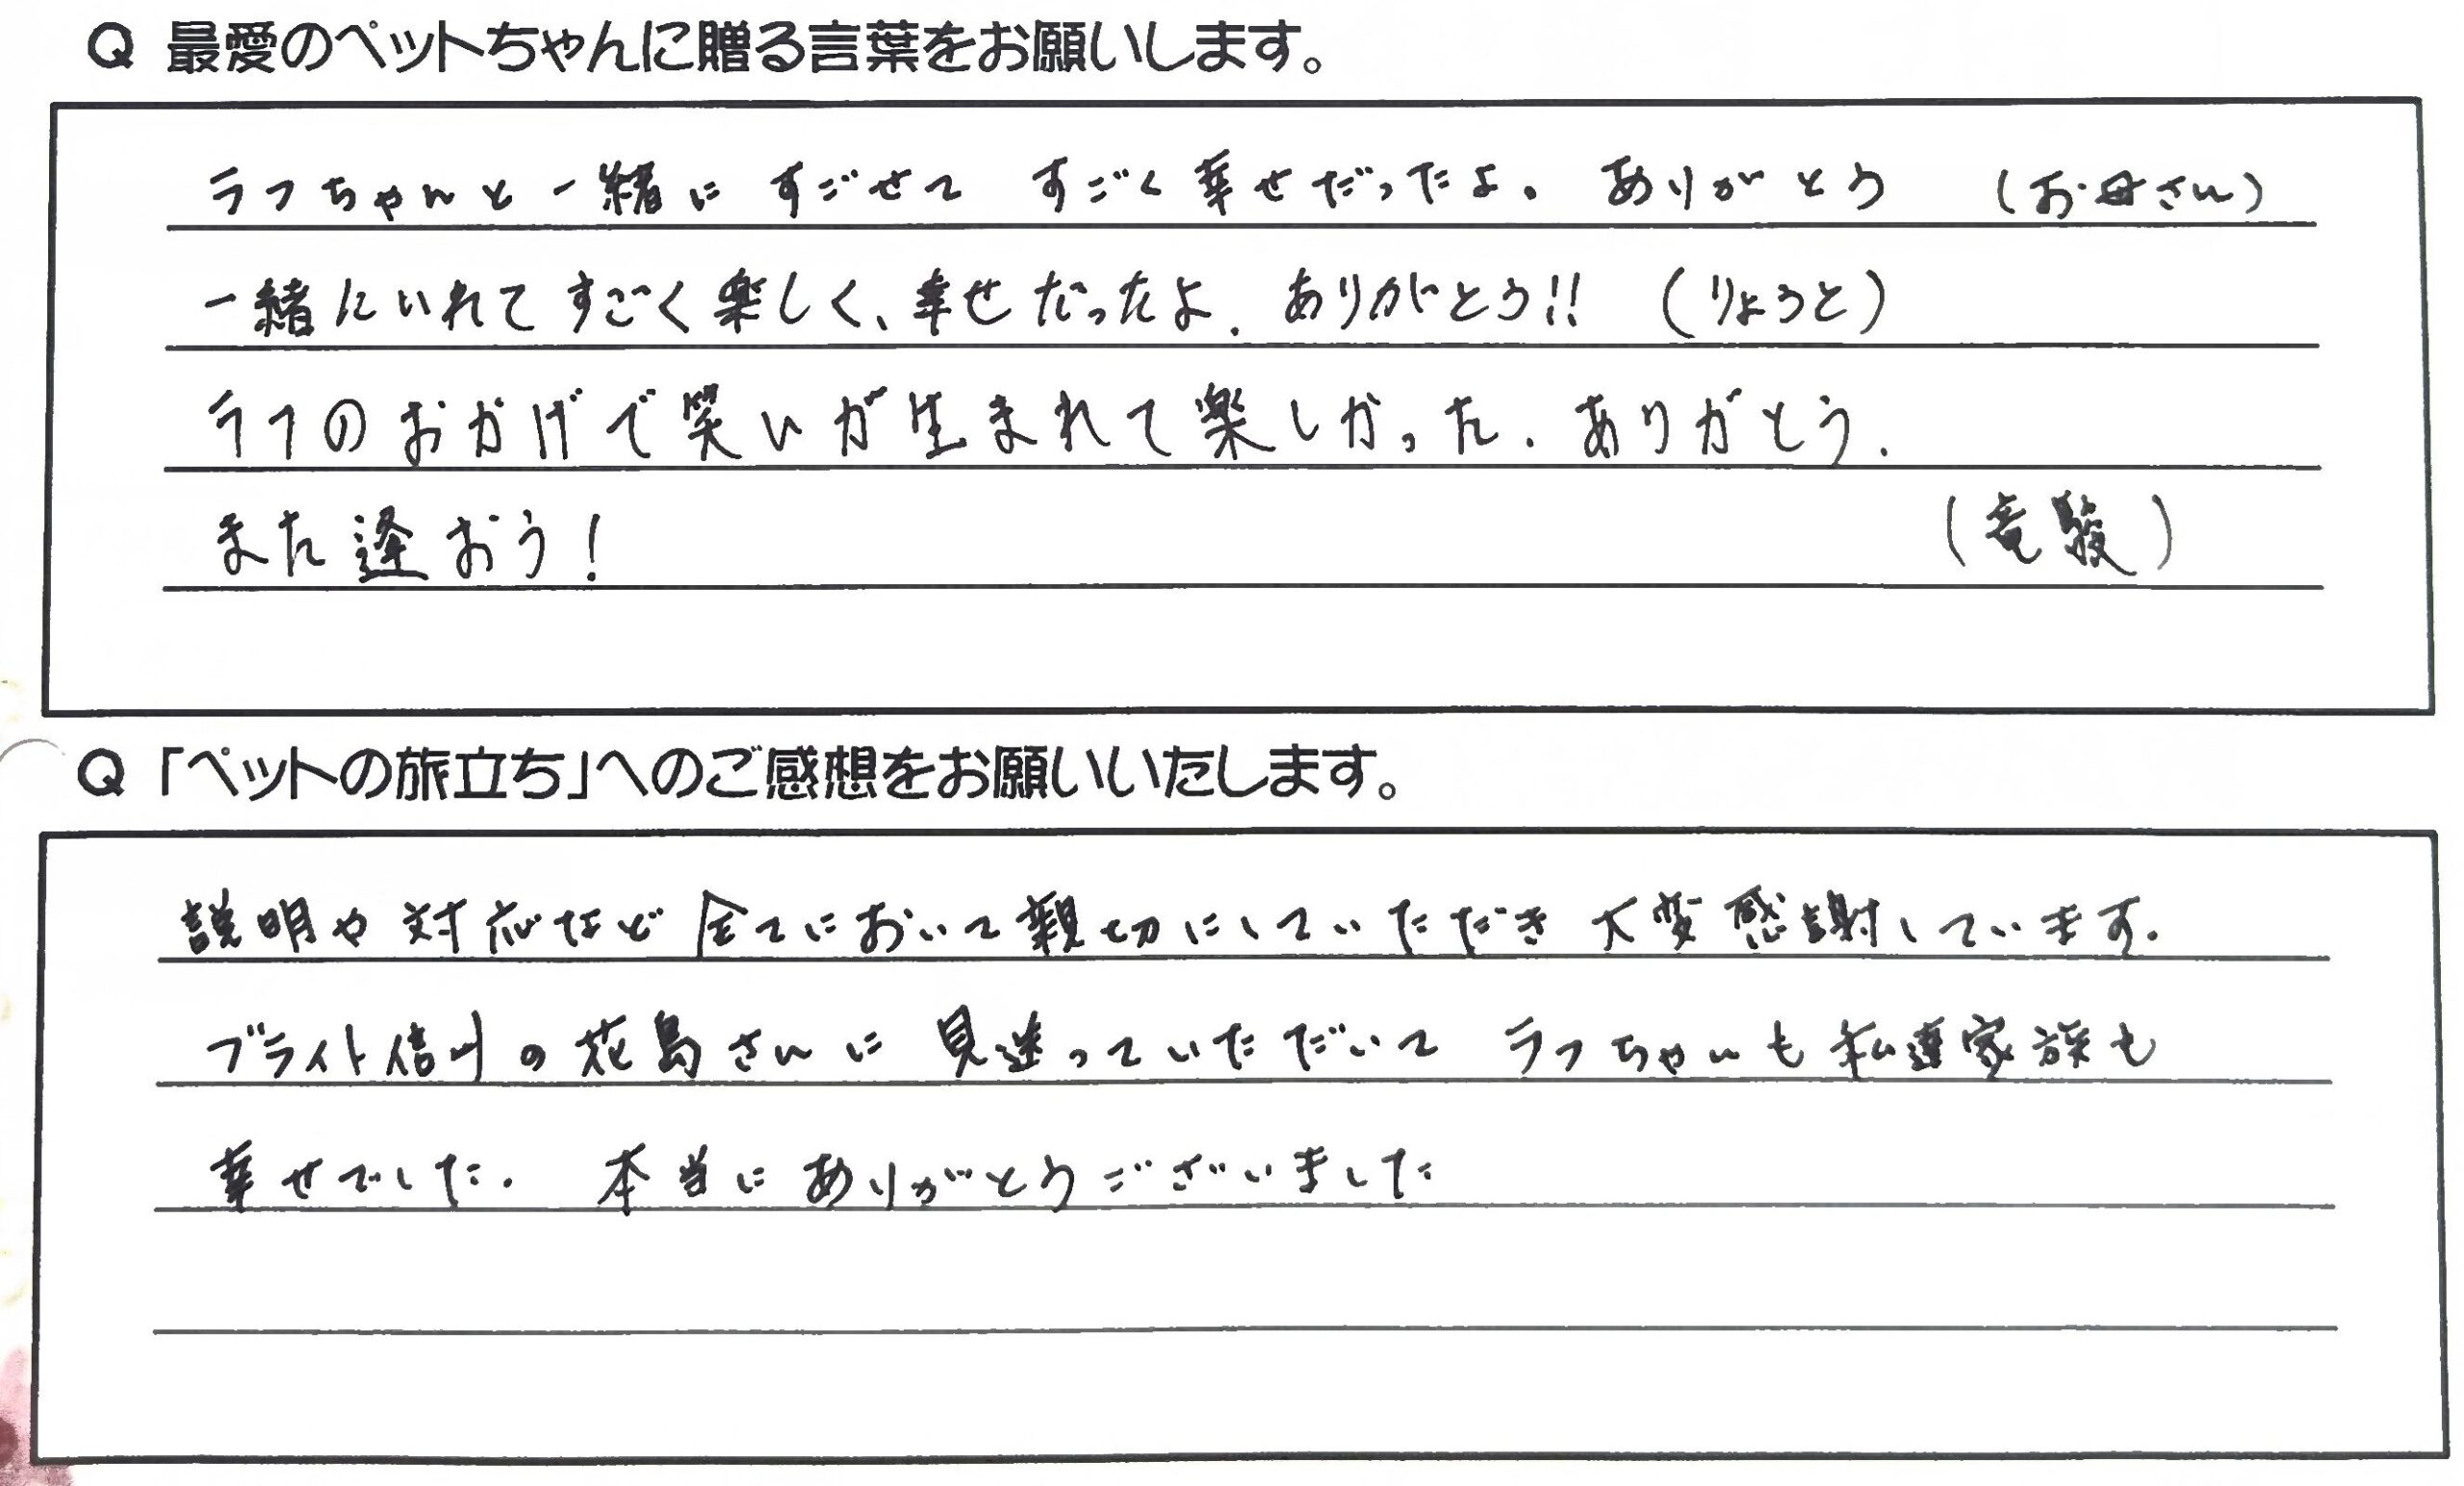 Q 最愛のペットちゃんに贈る言葉をお願いします。
ラフちゃんと一緒に すごせて すごく幸せだったよ。 ありがとう (お母さん)
一緒にいれてすごく楽しく、幸せだったよ. ありがとう!! (りょうと)
ラフのおかげで笑いが生まれて楽しかった. ありがとう.
また逢おう!
(竜駿)
Q 「ペットの旅立ち」へのご感想をお願いいたします。
説明や対応など全てにおいて親切にしていただき大変感謝しています.
ブライト信州の花島さんに見送っていただいて ラフちゃんも私達家族も
幸せでした. 本当にありがとうございました